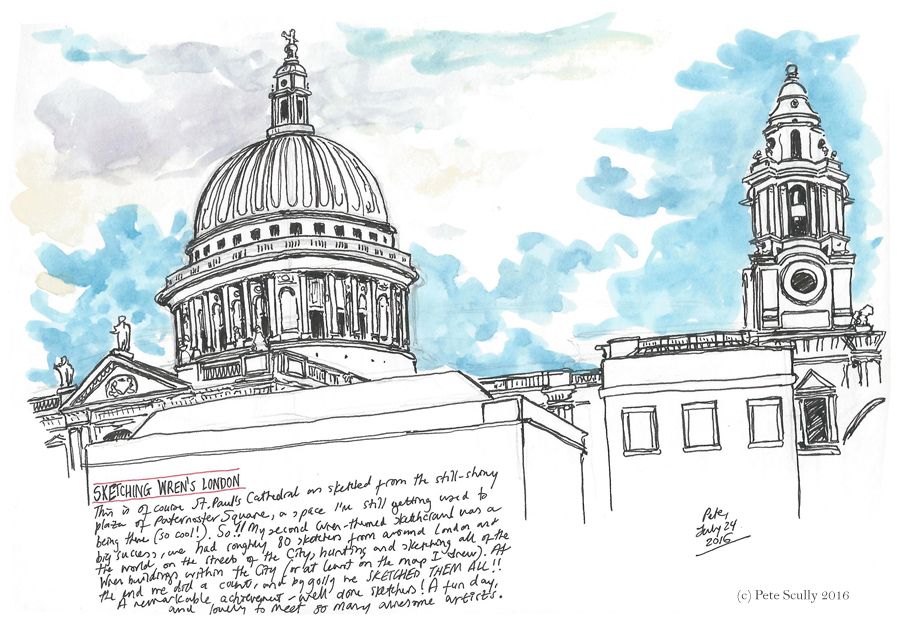 SKETCHING WREN'S LONDON
This is of course St. Paul's Cathedral as sketched from the still-shiny
plaza of Paternoster Square, a space I'm still getting used to
being there (so cool!). So!! My second Wren-themed sketchcrawl was a
big success, we had roughly 80 sketchers from around London and
the world, on the streets of the City, hunting and sketching all of the
Wren buildings within the City (or at least on the map I drew). At
the end we did a count, and by golly we SKETCHED THEM ALL!!
A remarkable achievement - well done sketchers! A fun day,
and lovely to meet so many awesome artists.
Pete,
July 24
2016
(c) Pete Scully 2016